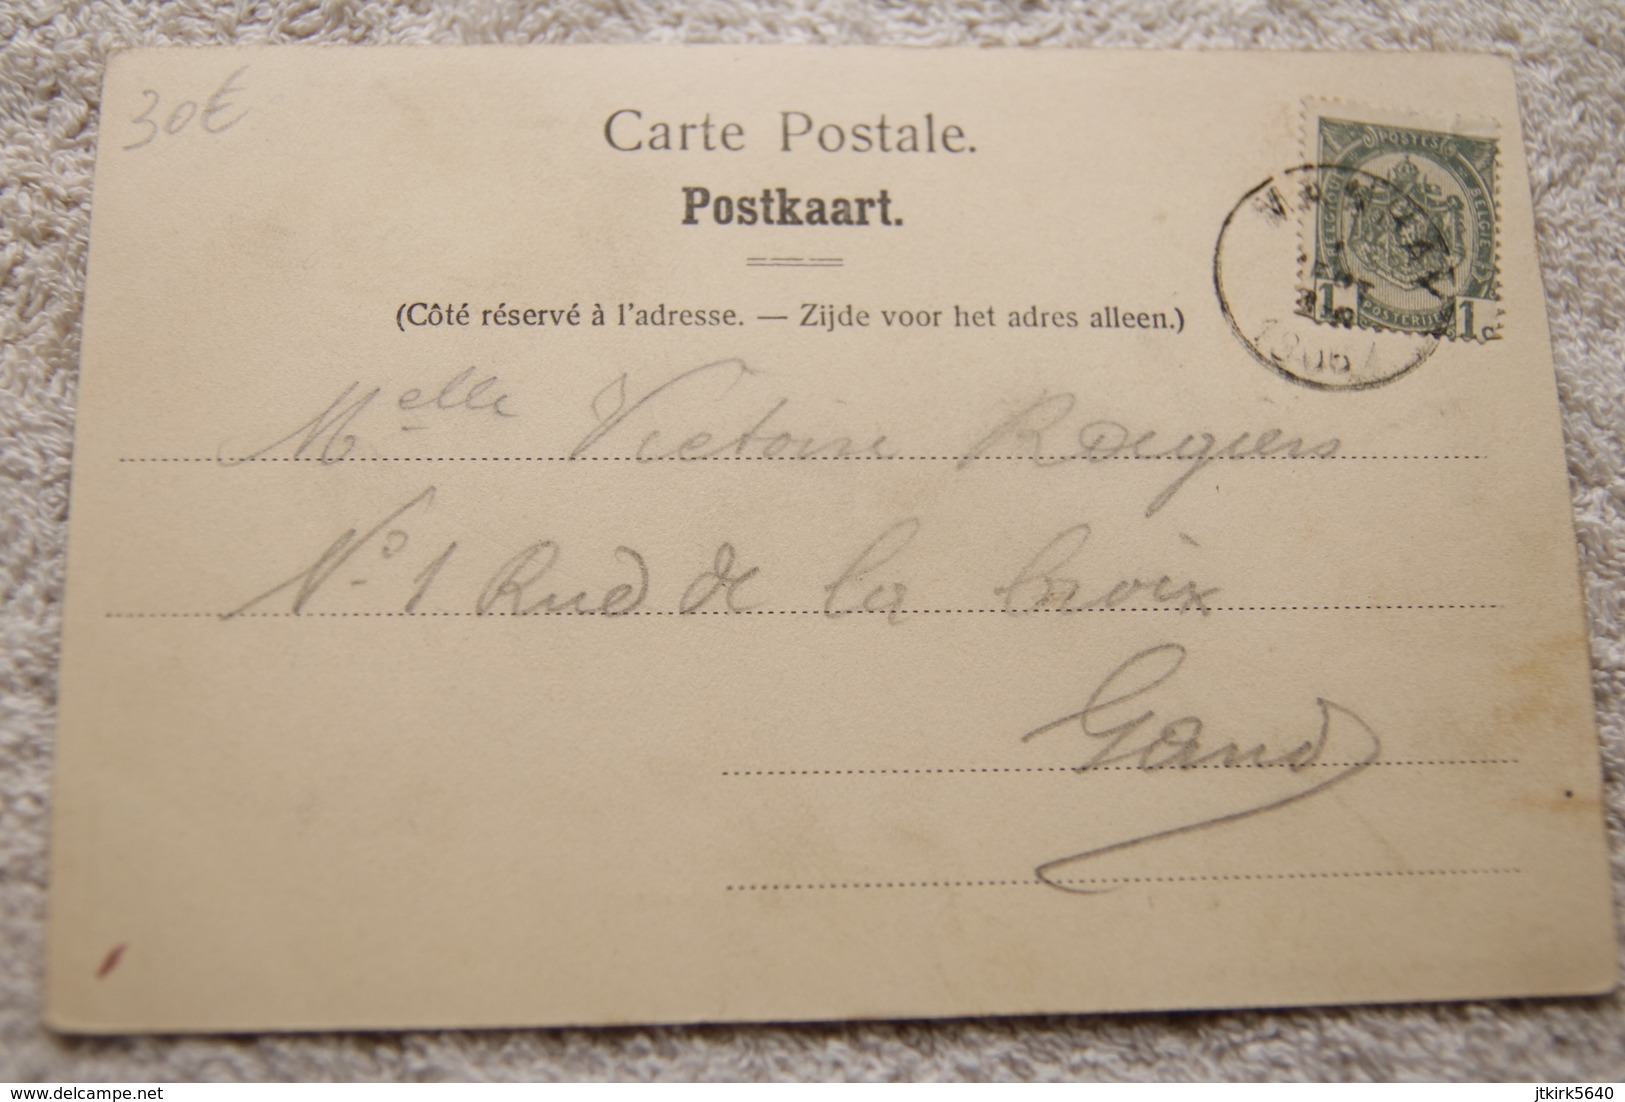 30€
Carte Postale.
Postkaart.
(Côté réservé à l'adresse. — Zijde voor het adres alleen.)
POSTES
BELGIE
1 1c
POSTERIJEN
1906
Melle Victoire Rogiers
No. 1 Rue de la Croix
Gand
www.delcampe.net
jtkirk5640